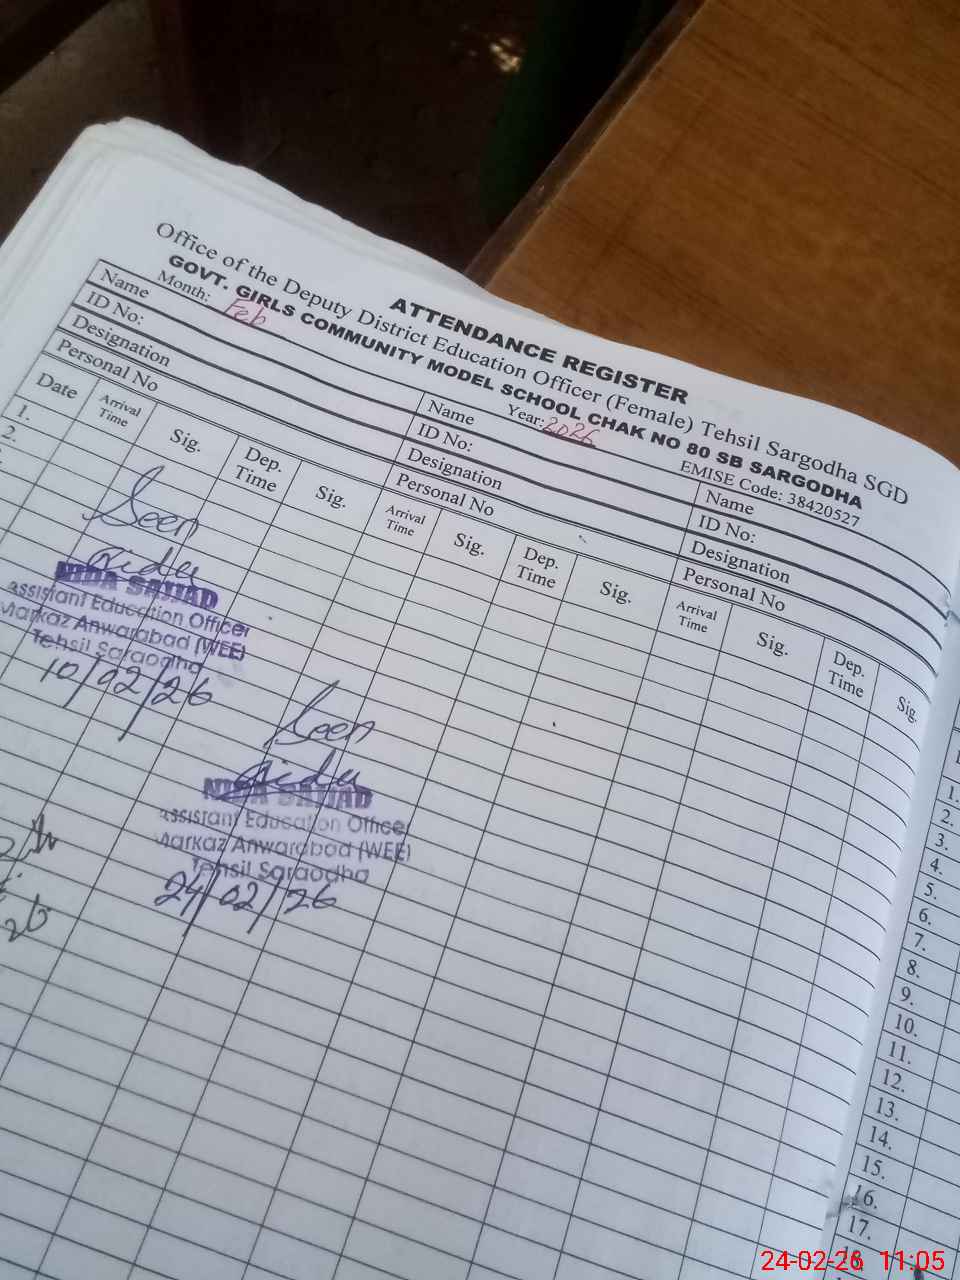 ATTENDANCE REGISTER
Office of the Deputy District Education Officer (Female) Tehsil Sargodha SGD
GOVT. GIRLS COMMUNITY MODEL SCHOOL CHAK NO 80 SB SARGODHA
Month: Feb Year: 2026 EMISE Code: 38420527
Name Name Name
ID No: ID No: ID No:
Designation Designation Designation
Personal No Personal No Personal No
Date Arrival Time Sig. Dep. Time Sig. Arrival Time Sig. Dep. Time Sig. Arrival Time Sig. Dep. Time Sig.
1.
2.
Seen
Nida
NIDA SAJJAD
Assistant Education Officer
Markaz Anwarabad (WEE)
Tehsil Sargodha
10/02/26
Seen
Nida
NIDA SAJJAD
Assistant Education Officer
Markaz Anwarabad (WEE)
Tehsil Sargodha
24/02/26
1.
2.
3.
4.
5.
6.
7.
8.
9.
10.
11.
12.
13.
14.
15.
16.
17.
24-02-26 11:05